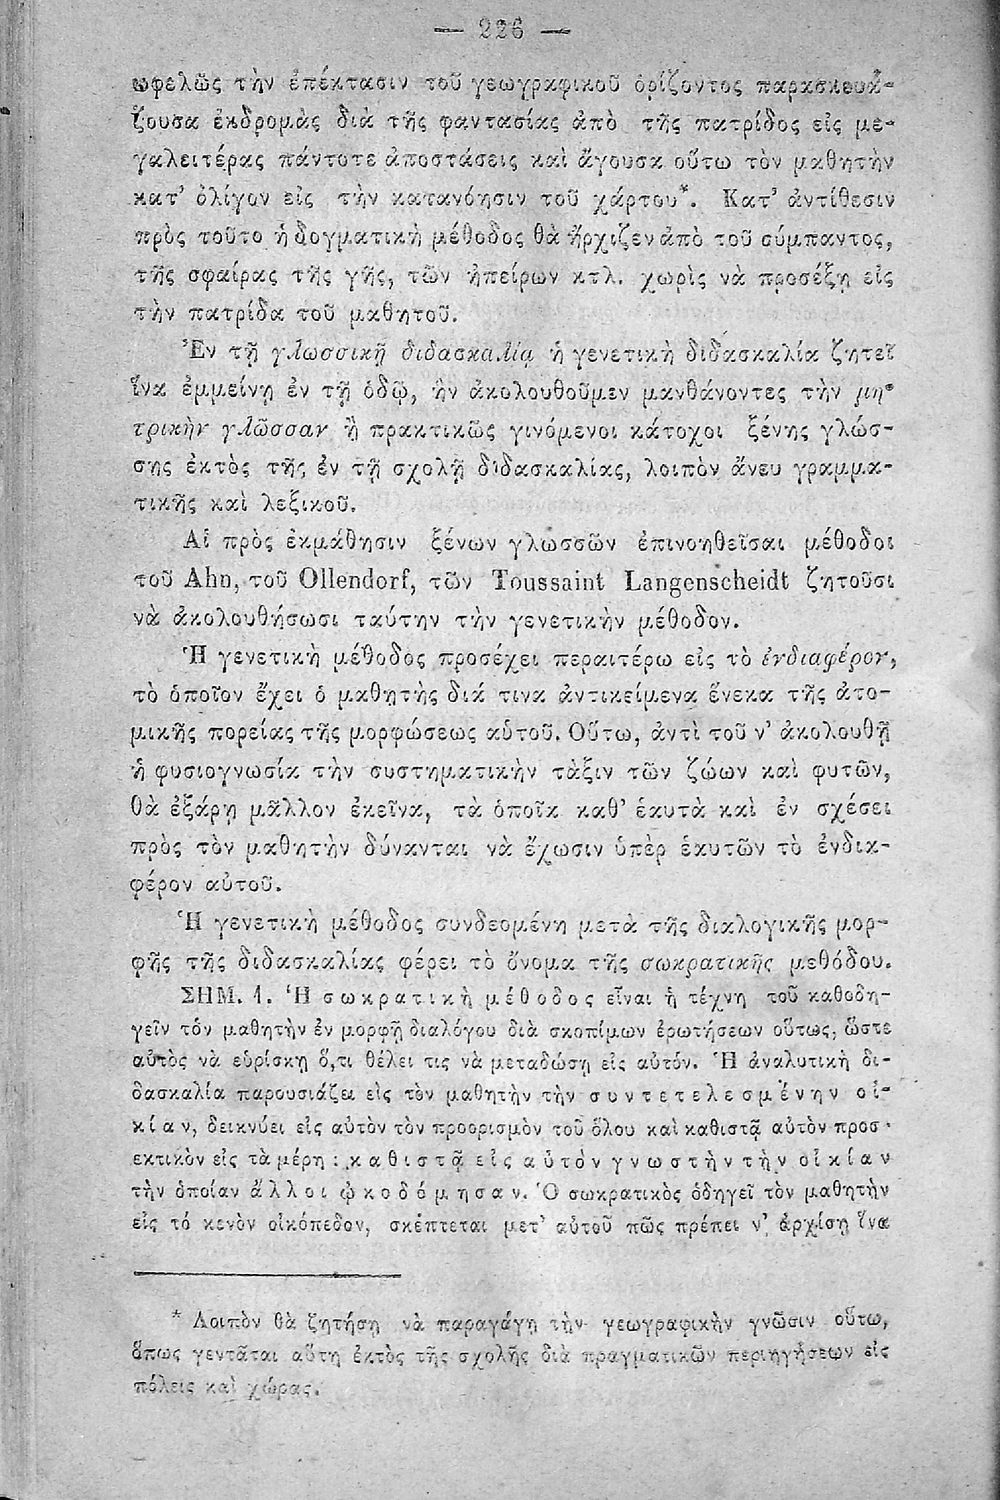 — 226 —
ωφελῶς τὴν ἐπέκτασιν τοῦ γεωγραφικοῦ ὁρίζοντος παρασκευά-
ζουσα ἐκδρομὰς διὰ τῆς φαντασίας ἀπὸ τῆς πατρίδος εἰς με-
γαλειτέρας πάντοτε ἀποστάσεις καὶ ἄγουσα οὕτω τὸν μαθητὴν
κατ’ ὀλίγον εἰς τὴν κατανόησιν τοῦ χάρτου*. Κατ’ ἀντίθεσιν
πρὸς τοῦτο ἡ δογματικὴ μέθοδος θὰ ἤρχιζεν ἀπὸ τοῦ σύμπαντος,
τῆς σφαίρας τῆς γῆς, τῶν ἠπείρων κτλ. χωρὶς νὰ προσέξῃ εἰς
τὴν πατρίδα τοῦ μαθητοῦ.
Ἐν τῇ γλωσσικῇ διδασκαλίᾳ ἡ γενετικὴ διδασκαλία ζητεῖ
ἵνα ἐμμείνῃ ἐν τῇ ὁδῷ, ἣν ἀκολουθοῦμεν μανθάνοντες τὴν μη-
τρικὴν γλῶσσαν ἢ πρακτικῶς γινόμενοι κάτοχοι ξένης γλώσ-
σης ἐκτὸς τῆς ἐν τῇ σχολῇ διδασκαλίας, λοιπὸν ἄνευ γραμμα-
τικῆς καὶ λεξικοῦ.
Αἱ πρὸς ἐκμάθησιν ξένων γλωσσῶν ἐπινοηθεῖσαι μέθοδοι
τοῦ Ahn, τοῦ Ollendorf, τῶν Toussaint Langenscheidt ζητοῦσι
νὰ ἀκολουθήσωσι ταύτην τὴν γενετικὴν μέθοδον.
Ἡ γενετικὴ μέθοδος προσέχει περαιτέρω εἰς τὸ ἐνδιαφέρον,
τὸ ὁποῖον ἔχει ὁ μαθητὴς διά τινα ἀντικείμενα ἕνεκα τῆς ἀτο-
μικῆς πορείας τῆς μορφώσεως αὑτοῦ. Οὕτω, ἀντὶ τοῦ ν’ ἀκολουθῇ
ἡ φυσιογνωσία τὴν συστηματικὴν τάξιν τῶν ζώων καὶ φυτῶν,
θὰ ἐξάρῃ μᾶλλον ἐκεῖνα, τὰ ὁποῖα καθ’ ἑαυτὰ καὶ ἐν σχέσει
πρὸς τὸν μαθητὴν δύνανται νὰ ἔχωσιν ὑπὲρ ἑαυτῶν τὸ ἐνδια-
φέρον αὐτοῦ.
Ἡ γενετικὴ μέθοδος συνδεομένη μετὰ τῆς διαλογικῆς μορ-
φῆς τῆς διδασκαλίας φέρει τὸ ὄνομα τῆς σωκρατικῆς μεθόδου.
ΣΗΜ. 1. Ἡ σωκρατικὴ μέθοδος εἶναι ἡ τέχνη τοῦ καθοδη-
γεῖν τὸν μαθητὴν ἐν μορφῇ διαλόγου διὰ σκοπίμων ἐρωτήσεων οὕτως, ὥστε
αὐτὸς νὰ εὑρίσκῃ ὅ,τι θέλει τις νὰ μεταδώσῃ εἰς αὐτόν. Ἡ ἀναλυτικὴ δι-
δασκαλία παρουσιάζει εἰς τὸν μαθητὴν τὴν συντετελεσμένην οἰ-
κίαν, δεικνύει εἰς αὐτὸν τὸν προορισμὸν τοῦ ὅλου καὶ καθιστᾷ αὐτὸν προσ-
εκτικὸν εἰς τὰ μέρη : καθιστᾷ εἰς αὐτὸν γνωστὴν τὴν οἰκίαν
τὴν ὁποίαν ἄλλοι ᾠκοδόμησαν. Ὁ σωκρατικὸς ὁδηγεῖ τὸν μαθητὴν
εἰς τό κενὸν οἰκόπεδον, σκέπτεται μετ’ αὐτοῦ πῶς πρέπει ν’ ἀρχίσῃ ἵνα
* Λοιπὸν θὰ ζητήσῃ νὰ παραγάγῃ τὴν γεωγραφικὴν γνῶσιν οὕτω,
ὅπως γεννᾶται αὕτη ἐκτὸς τῆς σχολῆς διὰ πραγματικῶν περιηγήσεων εἰς
πόλεις καὶ χώρας.